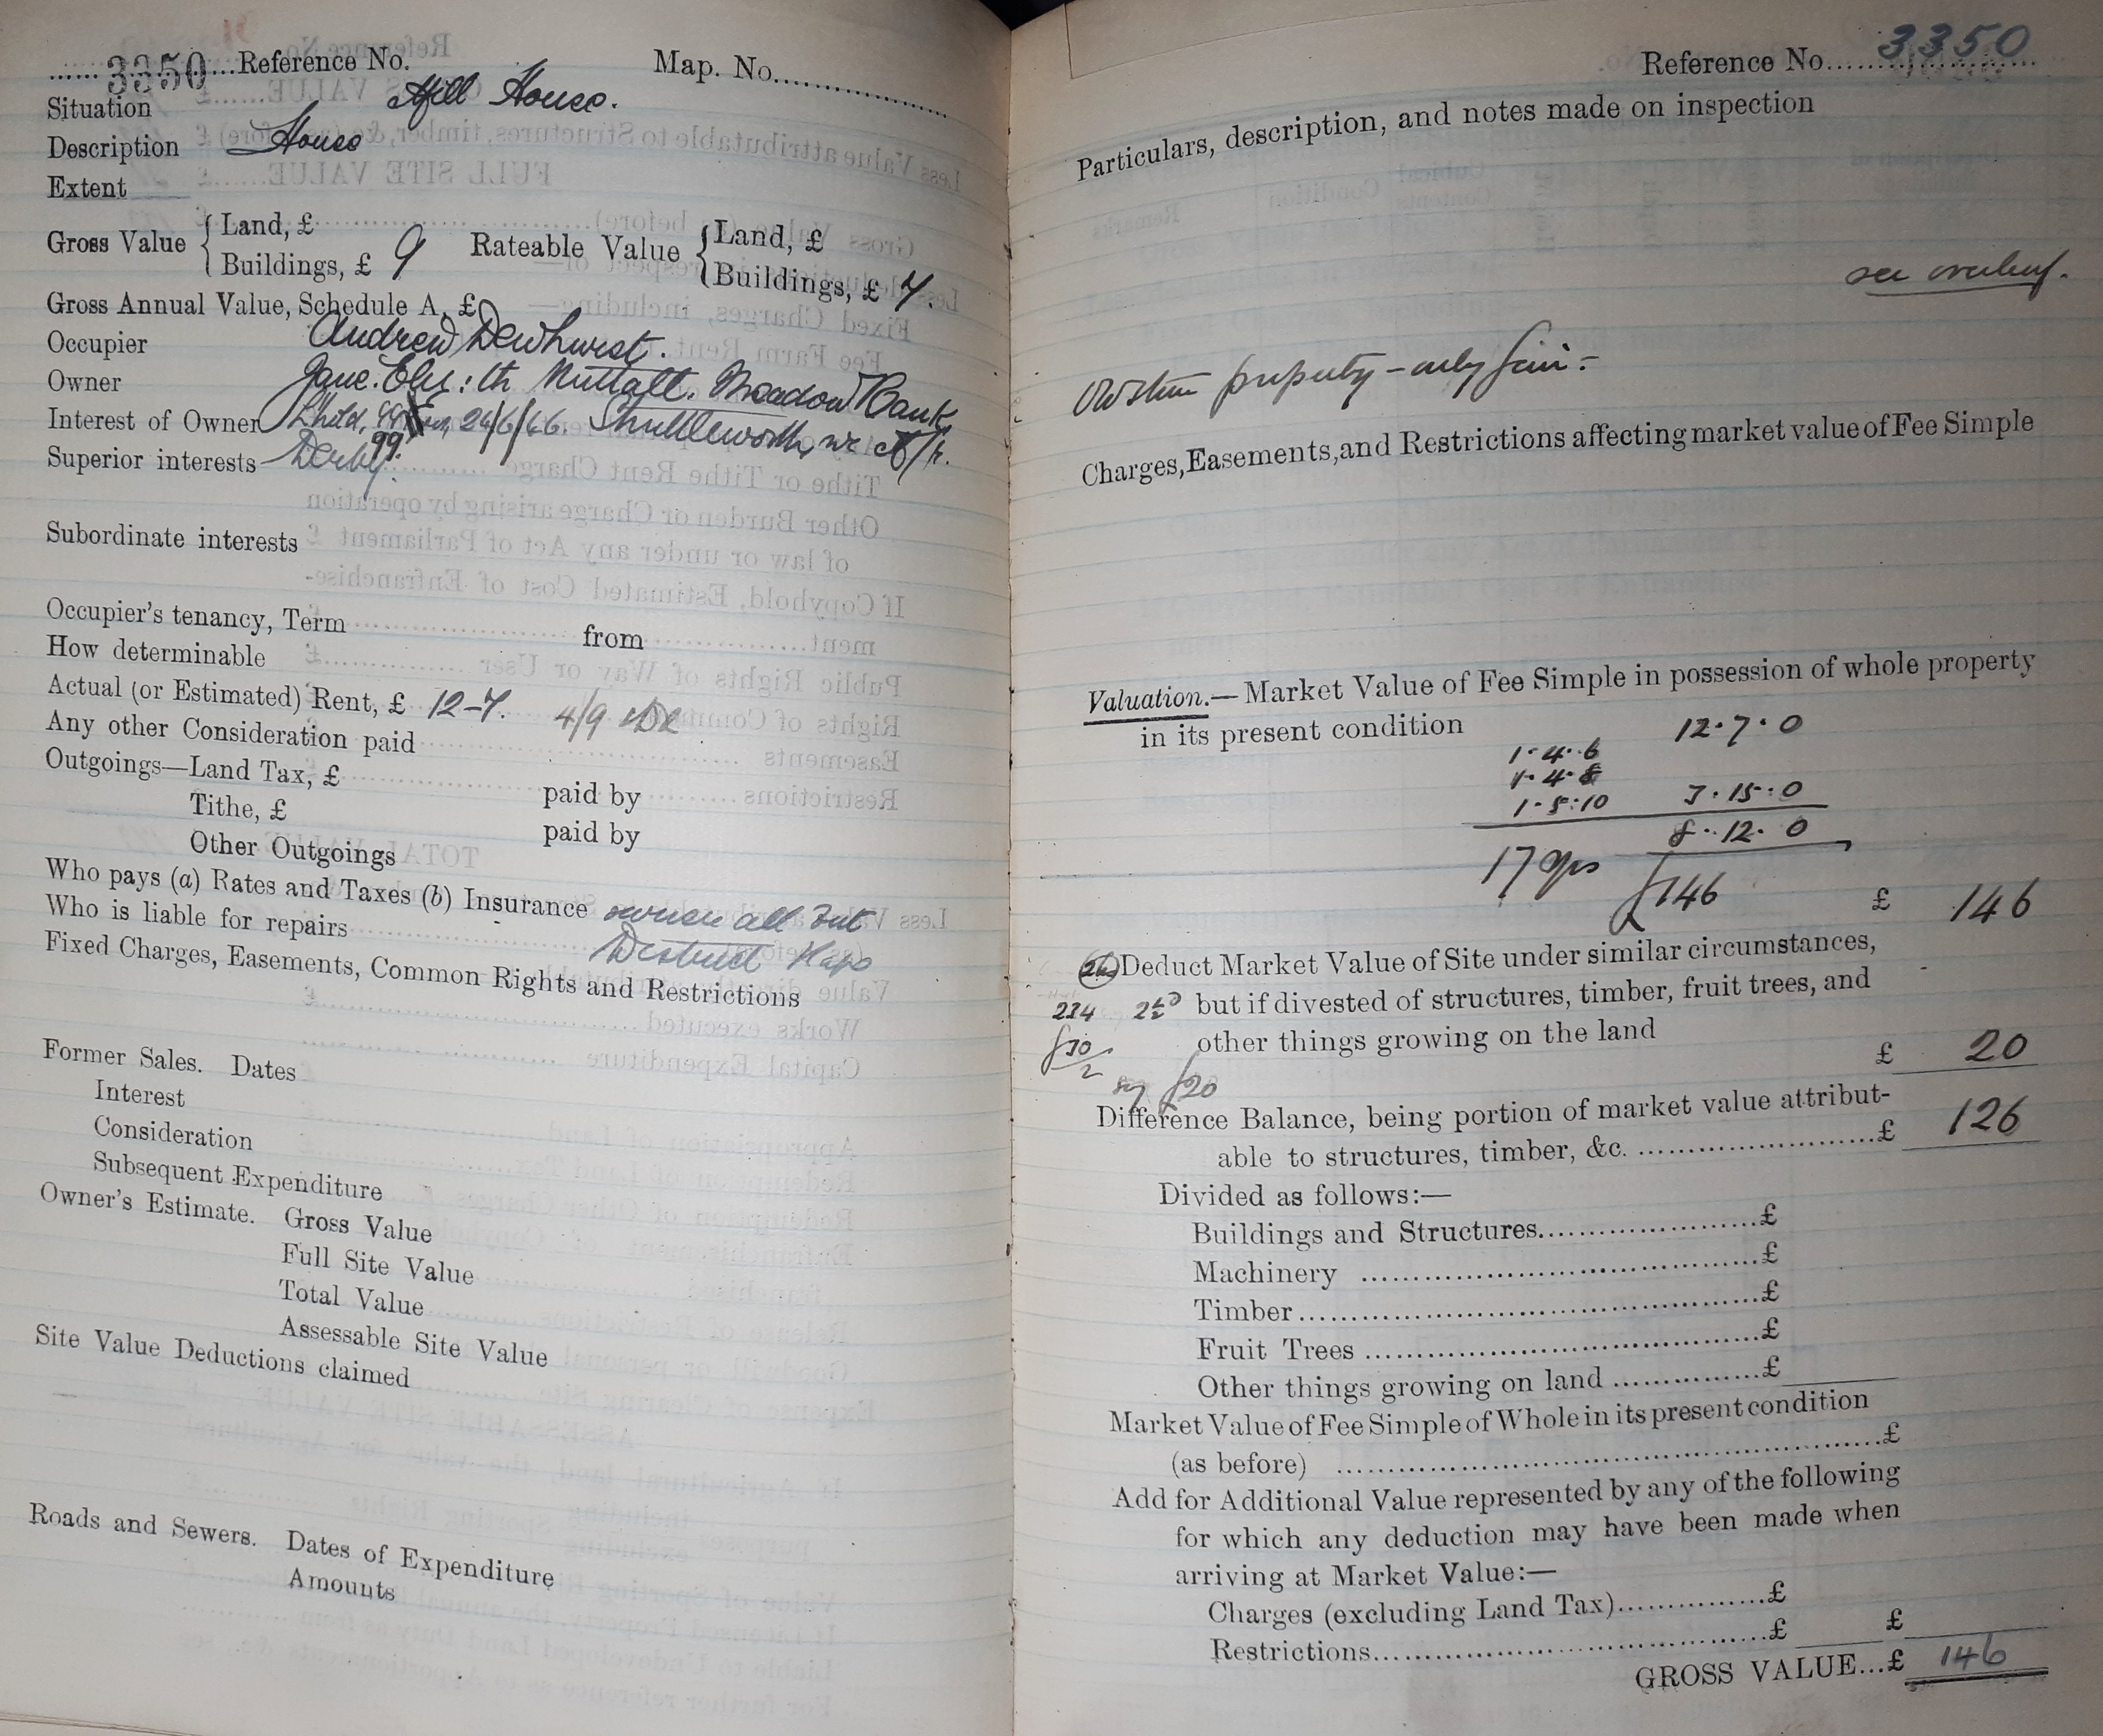 3350 Reference No. Map. No.
Situation Mill House.
Description House
Extent
Gross Value { Land, £
Buildings, £ 9
Rateable Value { Land, £
Buildings, £ 7.
Gross Annual Value, Schedule A, £
Occupier Andrew Dewhurst.
Owner Jane. Eliz:th Nuttall. Meadow Bank
Interest of Owner L'hold, 99 24/6/66. Shuttleworth, nr
Superior interests Derby.
Subordinate interests
Occupier's tenancy, Term from
How determinable
Actual (or Estimated) Rent, £ 12-7. 4/9
Any other Consideration paid
Outgoings—Land Tax, £ paid by
Tithe, £ paid by
Other Outgoings
Who pays (a) Rates and Taxes (b) Insurance owner all but
Who is liable for repairs District
Fixed Charges, Easements, Common Rights and Restrictions
Former Sales. Dates
Interest
Consideration
Subsequent Expenditure
Owner's Estimate. Gross Value
Full Site Value
Total Value
Assessable Site Value
Site Value Deductions claimed
Roads and Sewers. Dates of Expenditure
Amounts
Reference No. 3350
Particulars, description, and notes made on inspection
see overleaf.
Old stone property – only fair –
Charges, Easements, and Restrictions affecting market value of Fee Simple
Valuation.— Market Value of Fee Simple in possession of whole property
in its present condition 12.7.0
1.4.6
1.4.8
1.5.10 3.15.0
8.12.0
17 yrs £146 £ 146
Deduct Market Value of Site under similar circumstances,
234 but if divested of structures, timber, fruit trees, and
other things growing on the land £ 20
say £20
Difference Balance, being portion of market value attribut-
able to structures, timber, &c. £ 126
Divided as follows:—
Buildings and Structures £
Machinery £
Timber £
Fruit Trees £
Other things growing on land £
Market Value of Fee Simple of Whole in its present condition
(as before) £
Add for Additional Value represented by any of the following
for which any deduction may have been made when
arriving at Market Value:—
Charges (excluding Land Tax) £
Restrictions £ £
GROSS VALUE... £ 146